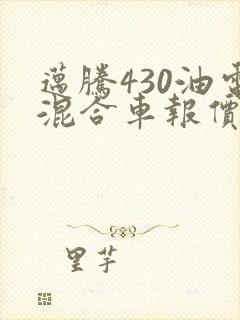 邁騰430油電
混合車報價
里芋